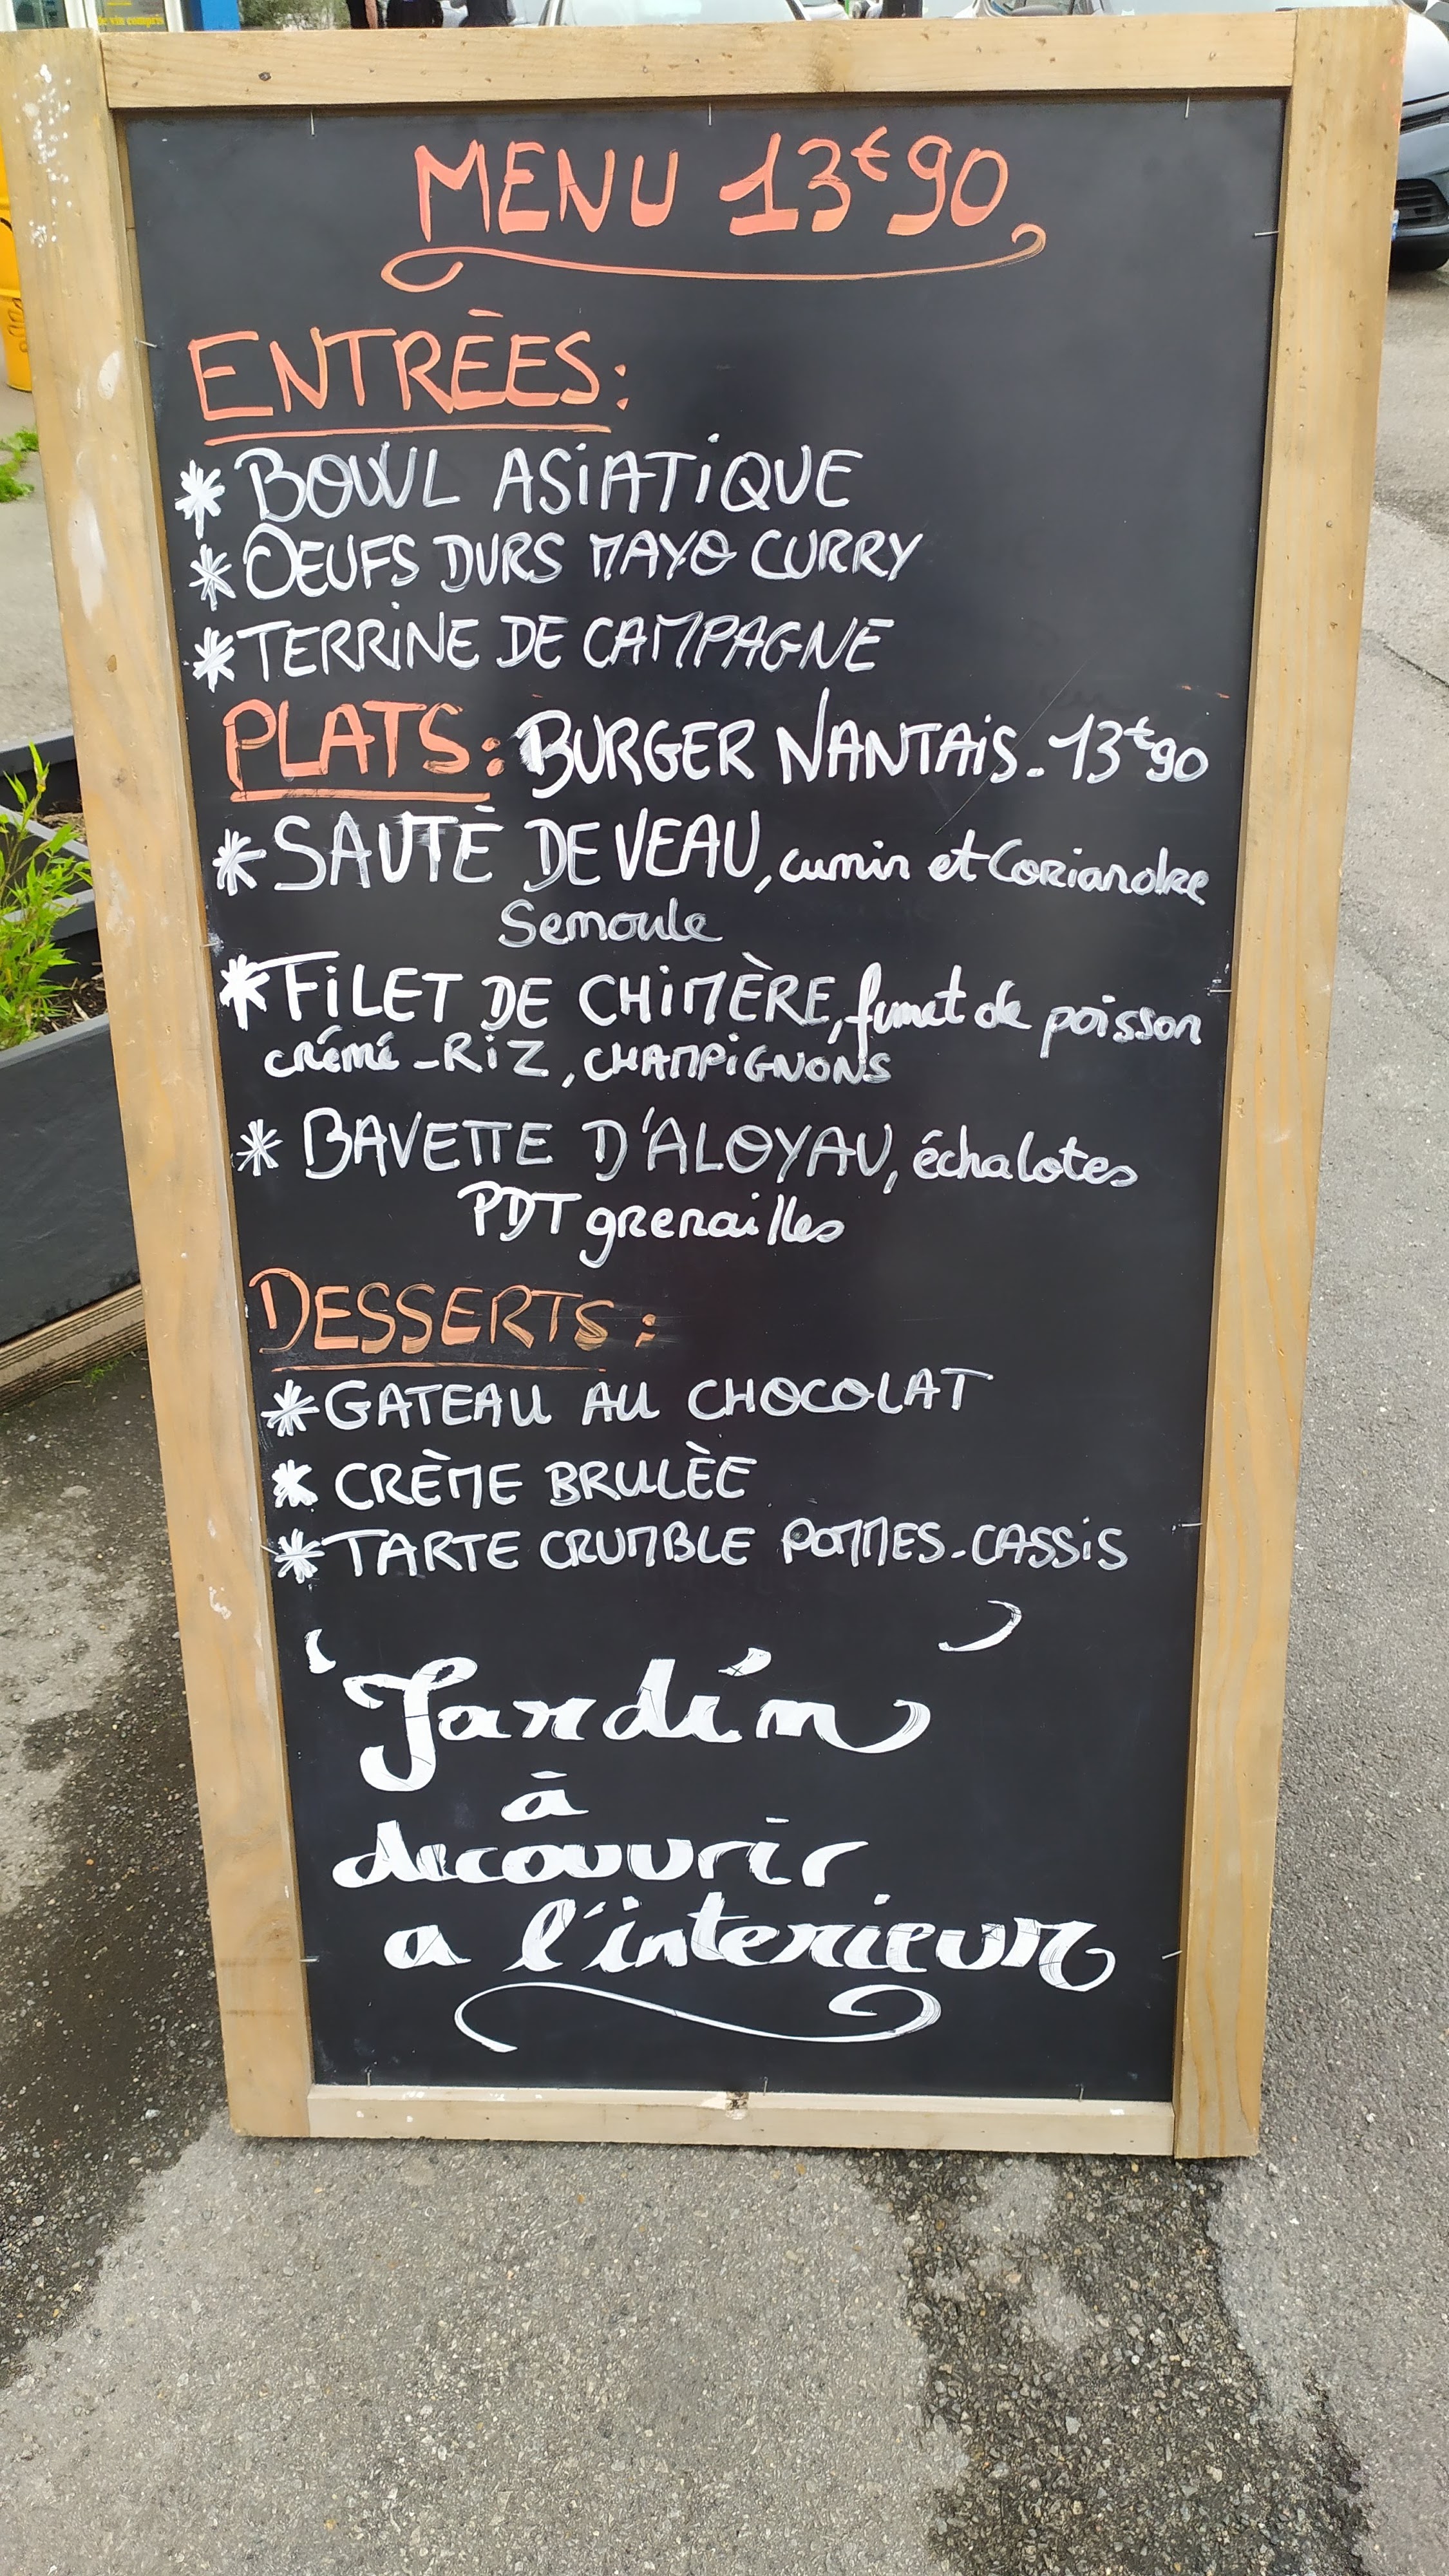 de vin compris
MENU 13€90
ENTRÉES:
* BOWL ASIATIQUE
* OEUFS DURS MAYO CURRY
* TERRINE DE CAMPAGNE
PLATS: BURGER NANTAIS - 13€90
* SAUTÉ DE VEAU, cumin et Coriandre
Semoule
* FILET DE CHIMÈRE, fumet de poisson
crémé - RIZ, CHAMPIGNONS
* BAVETTE D'ALOYAU, échalotes
PDT grenailles
DESSERTS:
* GATEAU AU CHOCOLAT
* CRÈME BRULÈE
* TARTE CRUMBLE POMMES-CASSIS
Jardin
à
decouvrir
a l'interieur